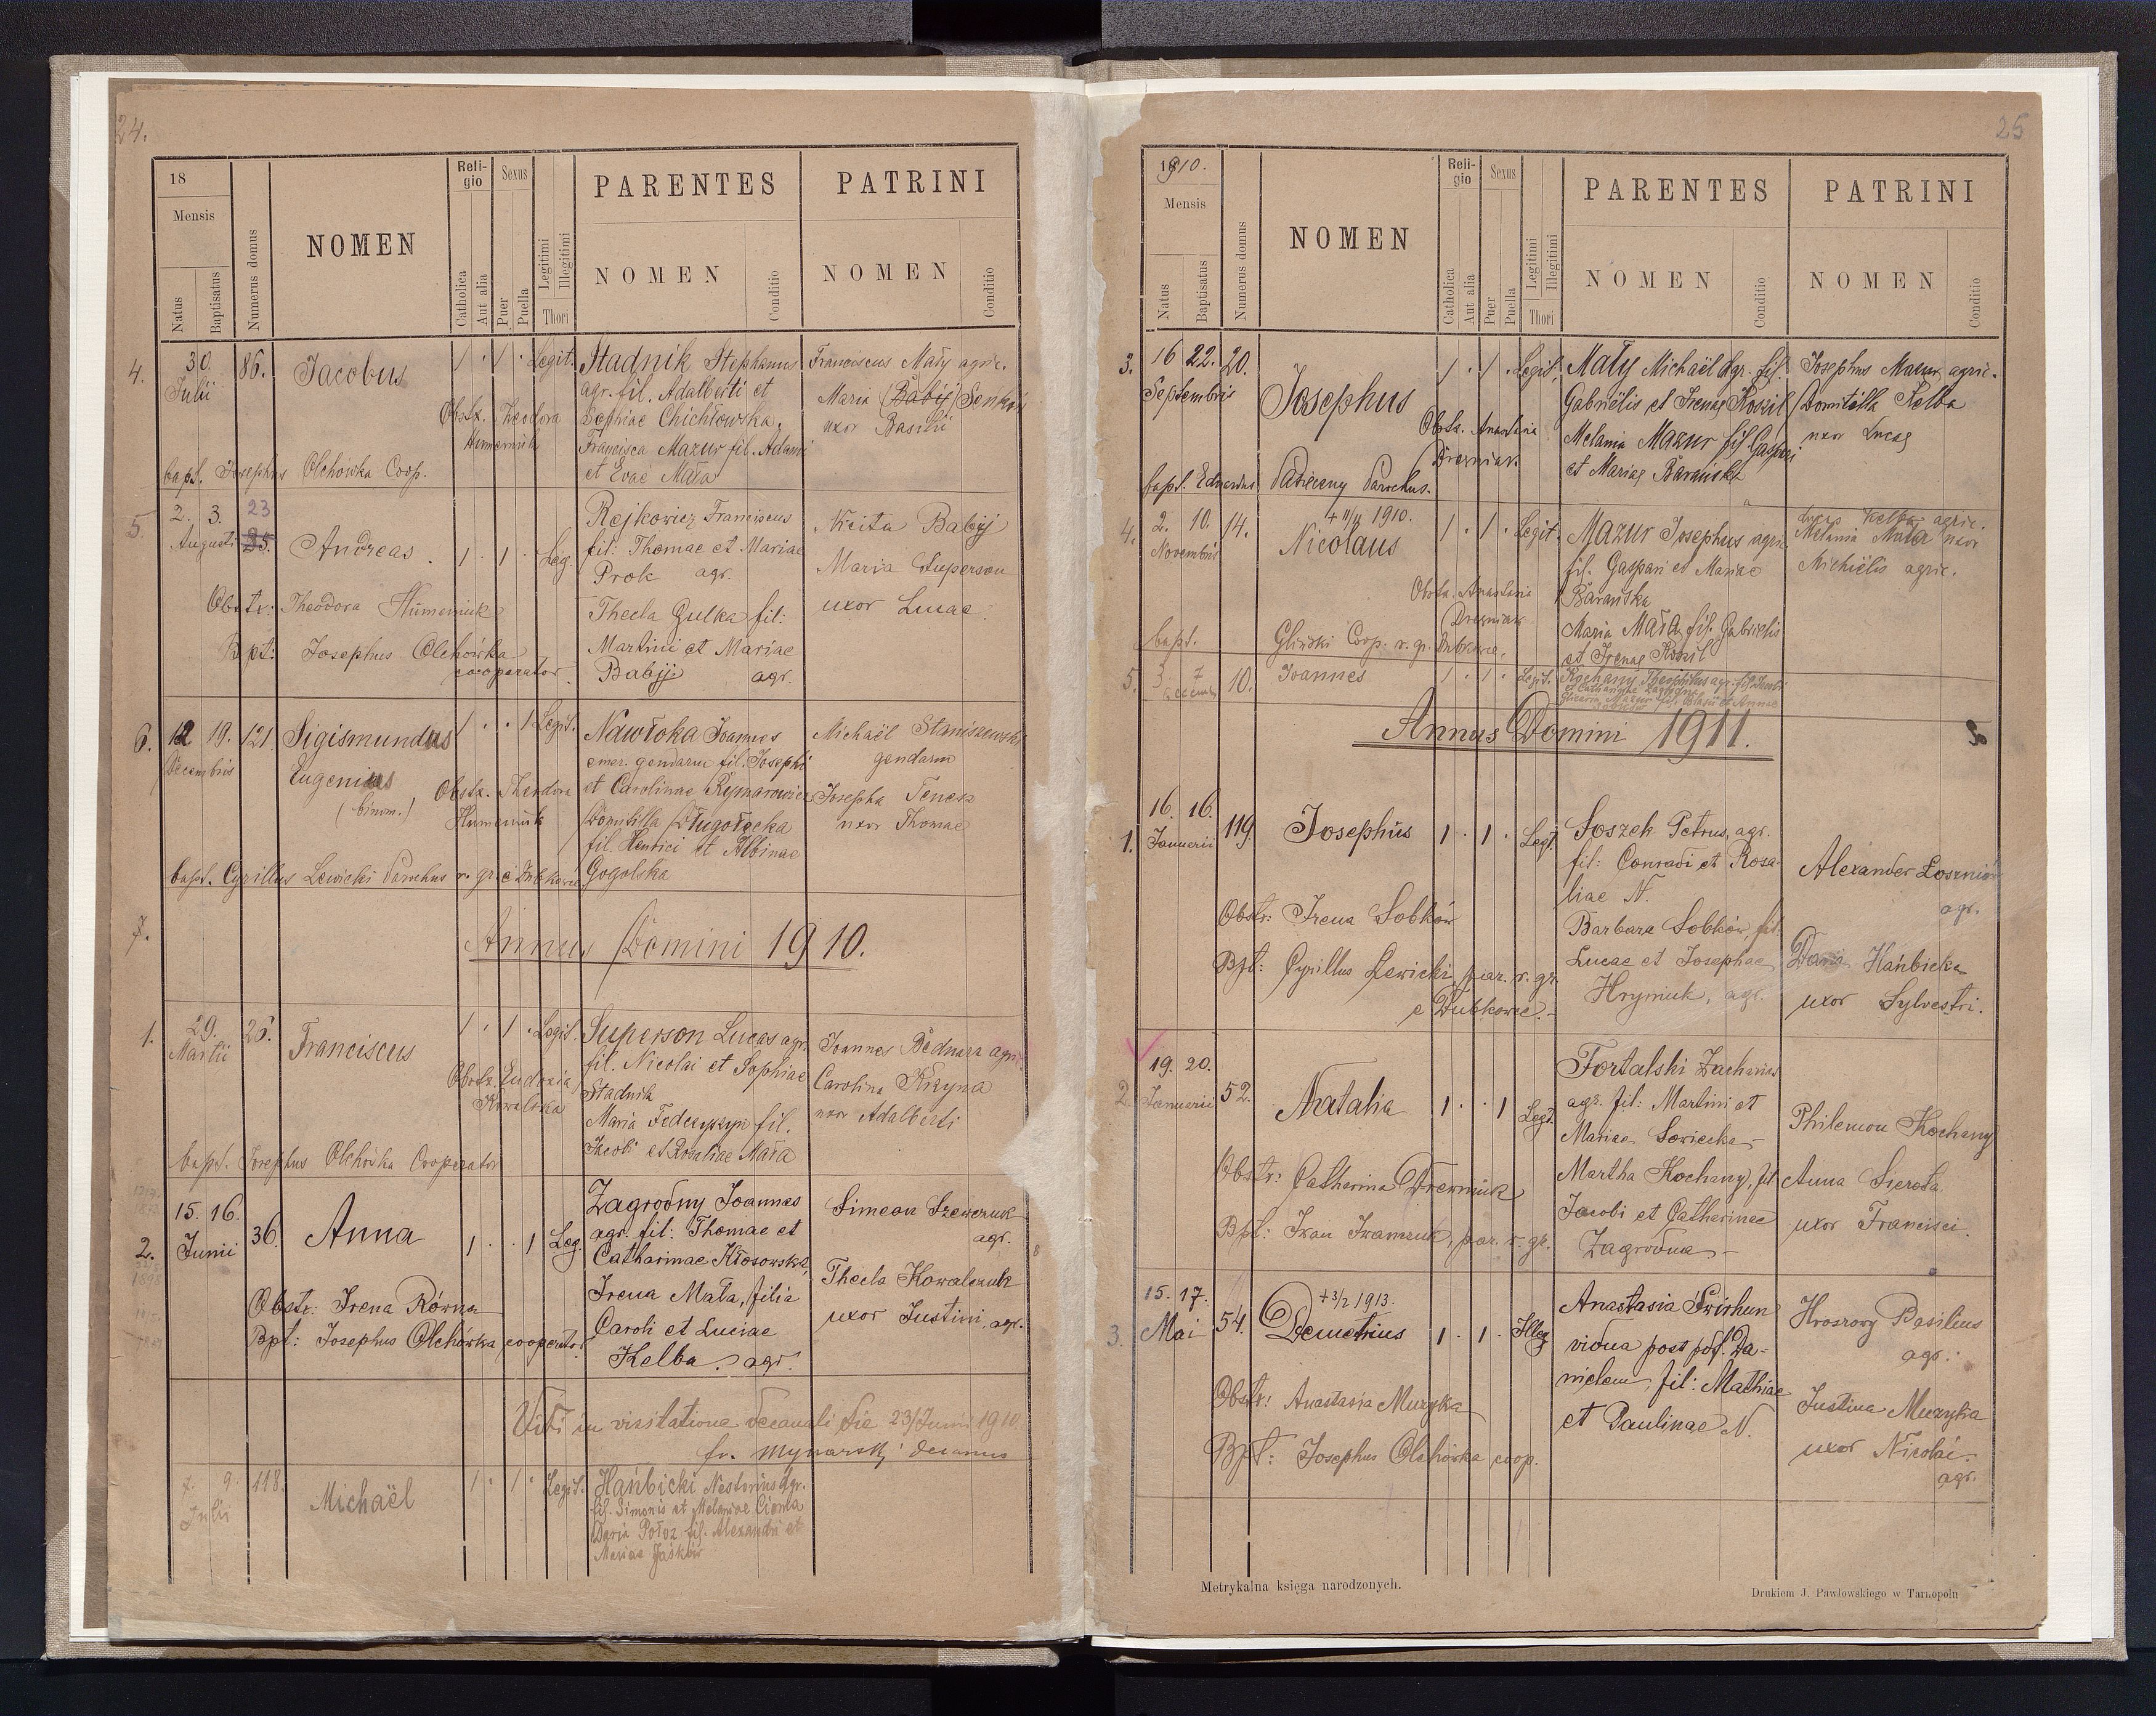 24.
18
Mensis
Natus
Baptisatus
Numerus domus
NOMEN
Reli-
gio
Catholica
Aut alia
Sexus
Puer
Puella
Legitimi
Illegitimi
Thori
PARENTES
NOMEN
Conditio
PATRINI
NOMEN
Conditio
4.
30.
Julii
86.
Jacobus
1 . 1 . Legit.
Obstr. Theodora
Humeniuk
bapt. Josephus Olchówka Coop.
Stadnik Stephanus
agr. fil. Adalberti et
Sophiae Chichłowska.
Francisca Mazur fil. Adami
et Evae Mała
Franciscus Mały agric.
Maria (Babij) Senków
uxor Basilii
5
2. 3.
Augusti
23
35.
Andreas
1 . 1 . Leg.
Obstr: Theodora Humeniuk
Bpt: Josephus Olchówka
cooperator.
Rejkowicz Franciscus
fil: Thomae et Mariae
Prok agr.
Thecla Gulka fil:
Martini et Mariae
Babij agr.
Nicita Babij
Maria Superson
uxor Lucae
6.
12 19.
Decembris
121.
Sigismundus
Eugenius
(binom.)
1 . . 1 Legit.
Obstr. Theodora
Humeniuk
bapt. Cyrillus Lewicki Parochus r. gr. e Dubkowce
Nawłoka Joannes
emer. gendarm fil. Josephi
et Carolinae Rymarowicz
Domitilla Długołęcka
fil. Henrici et Albinae
Gogolska
Michaël Staniszewski
gendarm
Josepha Tenesz
uxor Thomae
7.
Annus Domini 1910.
1.
29.
Martii
26.
Franciscus
1 . 1 . Legit.
Obstr. Eudoxia
Kowalska
bapt. Josephus Olchówka Cooperator
Superson Lucas agr.
fil. Nicolai et Sophiae
Stadnik
Maria Fedczyszyn fil.
Jacobi et Rosaliae Mała
Joannes Bednarz agr.
Carolina Kizyna
uxor Adalberti
2.
15. 16.
Junii
36.
Anna
1 . . 1 Leg.
Obstr: Irena Równa
Bpt: Josephus Olchówka cooperator
Zagrodny Joannes
agr. fil: Thomae et
Catharinae Kłosowska,
Irena Mała, filia
Caroli et Luciae
Kelba agr.
Simeon Szewczuk
agr.
Thecla Kowalczuk
uxor Justini, agr.
Vidi in visitatione decanali die 23/Junii 1910.
decanus
7. 9.
Julii
118.
Michaël
1 . 1 . Legit.
Hańbicki Nestorius agr.
fil. Simonis et Melaniae Cionla
Daria Połoz fil. Alexandri et
Mariae Jaśków
25
1910.
Mensis
Natus
Baptisatus
Numerus domus
NOMEN
Reli-
gio
Catholica
Aut alia
Sexus
Puer
Puella
Legitimi
Illegitimi
Thori
PARENTES
NOMEN
Conditio
PATRINI
NOMEN
Conditio
3.
16 22.
Septembris
20.
Josephus
1 . 1 . Legit.
Obstr. Anastasia
Drezniak.
bapt. Eduardus Parochus.
Mały Michaël agr. fil.
Gabriëlis et Irenae Koszil
Melania Mazur fil. Gaspari
et Mariae Barańska
Josephus Mazur agric.
Domitilla Kelba
uxor Lucae
4.
2. 10.
Novembris
14.
+ 11/11 1910.
Nicolaus
1 . 1 . Legit.
Obstr. Anastasia
Drezniak
bapt. Gliński Coop. r. gr. Dubkowce.
Mazur Josephus agric.
fil. Gaspari et Mariae
Barańska
Maria Mała fil. Gabrielis
et Irenae Koszil
Lucas Kelba agric.
Melania Mała uxor
Michiëlis agric.
5.
3. 7
Decembr.
10.
Joannes
1 . 1 . Legit.
Kochany Theophilus agr. fil. Jacobi
et Catharinae Zagrodna
Annus Domini 1911.
1.
16. 16.
Januarii
119.
Josephus
1 . 1 . Legt.
Obstr: Irena Sobków
Bpt: Cyrillus Lewicki par. r. gr.
e Dubkowce.-
Soszek Petrus, agr.
fil: Conradi et Rosa-
liae N.
Barbara Sobków, fil.
Lucae et Josephae
Hryniuk, agr.
Alexander Łoszniów
agr.
Daria Hańbicka
uxor Sylvestri.
2.
19. 20.
Januarii
52.
Natalia
1 . . 1 Legt.
Obstr: Catharina Drewniuk
Bpt: Iwan Iwanczuk, par. r. gr.
Fortalski Zacharias
agr. fil: Martini et
Mariae Sowiecka -
Martha Kochany, fil
Jacobi et Catharinae
Zagrodna -
Philemon Kochany
Anna Sierota
uxor Francisci.
3.
15. 17.
Mai
54.
+ 3/2 1913.
Demetrius
1 . 1 . Illeg
Obstr: Anastasia Muzyka
Bpt: Josephus Olchówka coop.
Anastasia Świrhun
vidua post pdf. Da-
nielem, fil: Mathiae
et Paulinae N.
Hroszowy Basilius
agr.
Justina Muzyka
uxor Nicolai.
agr.
Metrykalna księga narodzonych.
Drukiem J. Pawłowskiego w Tarnopolu